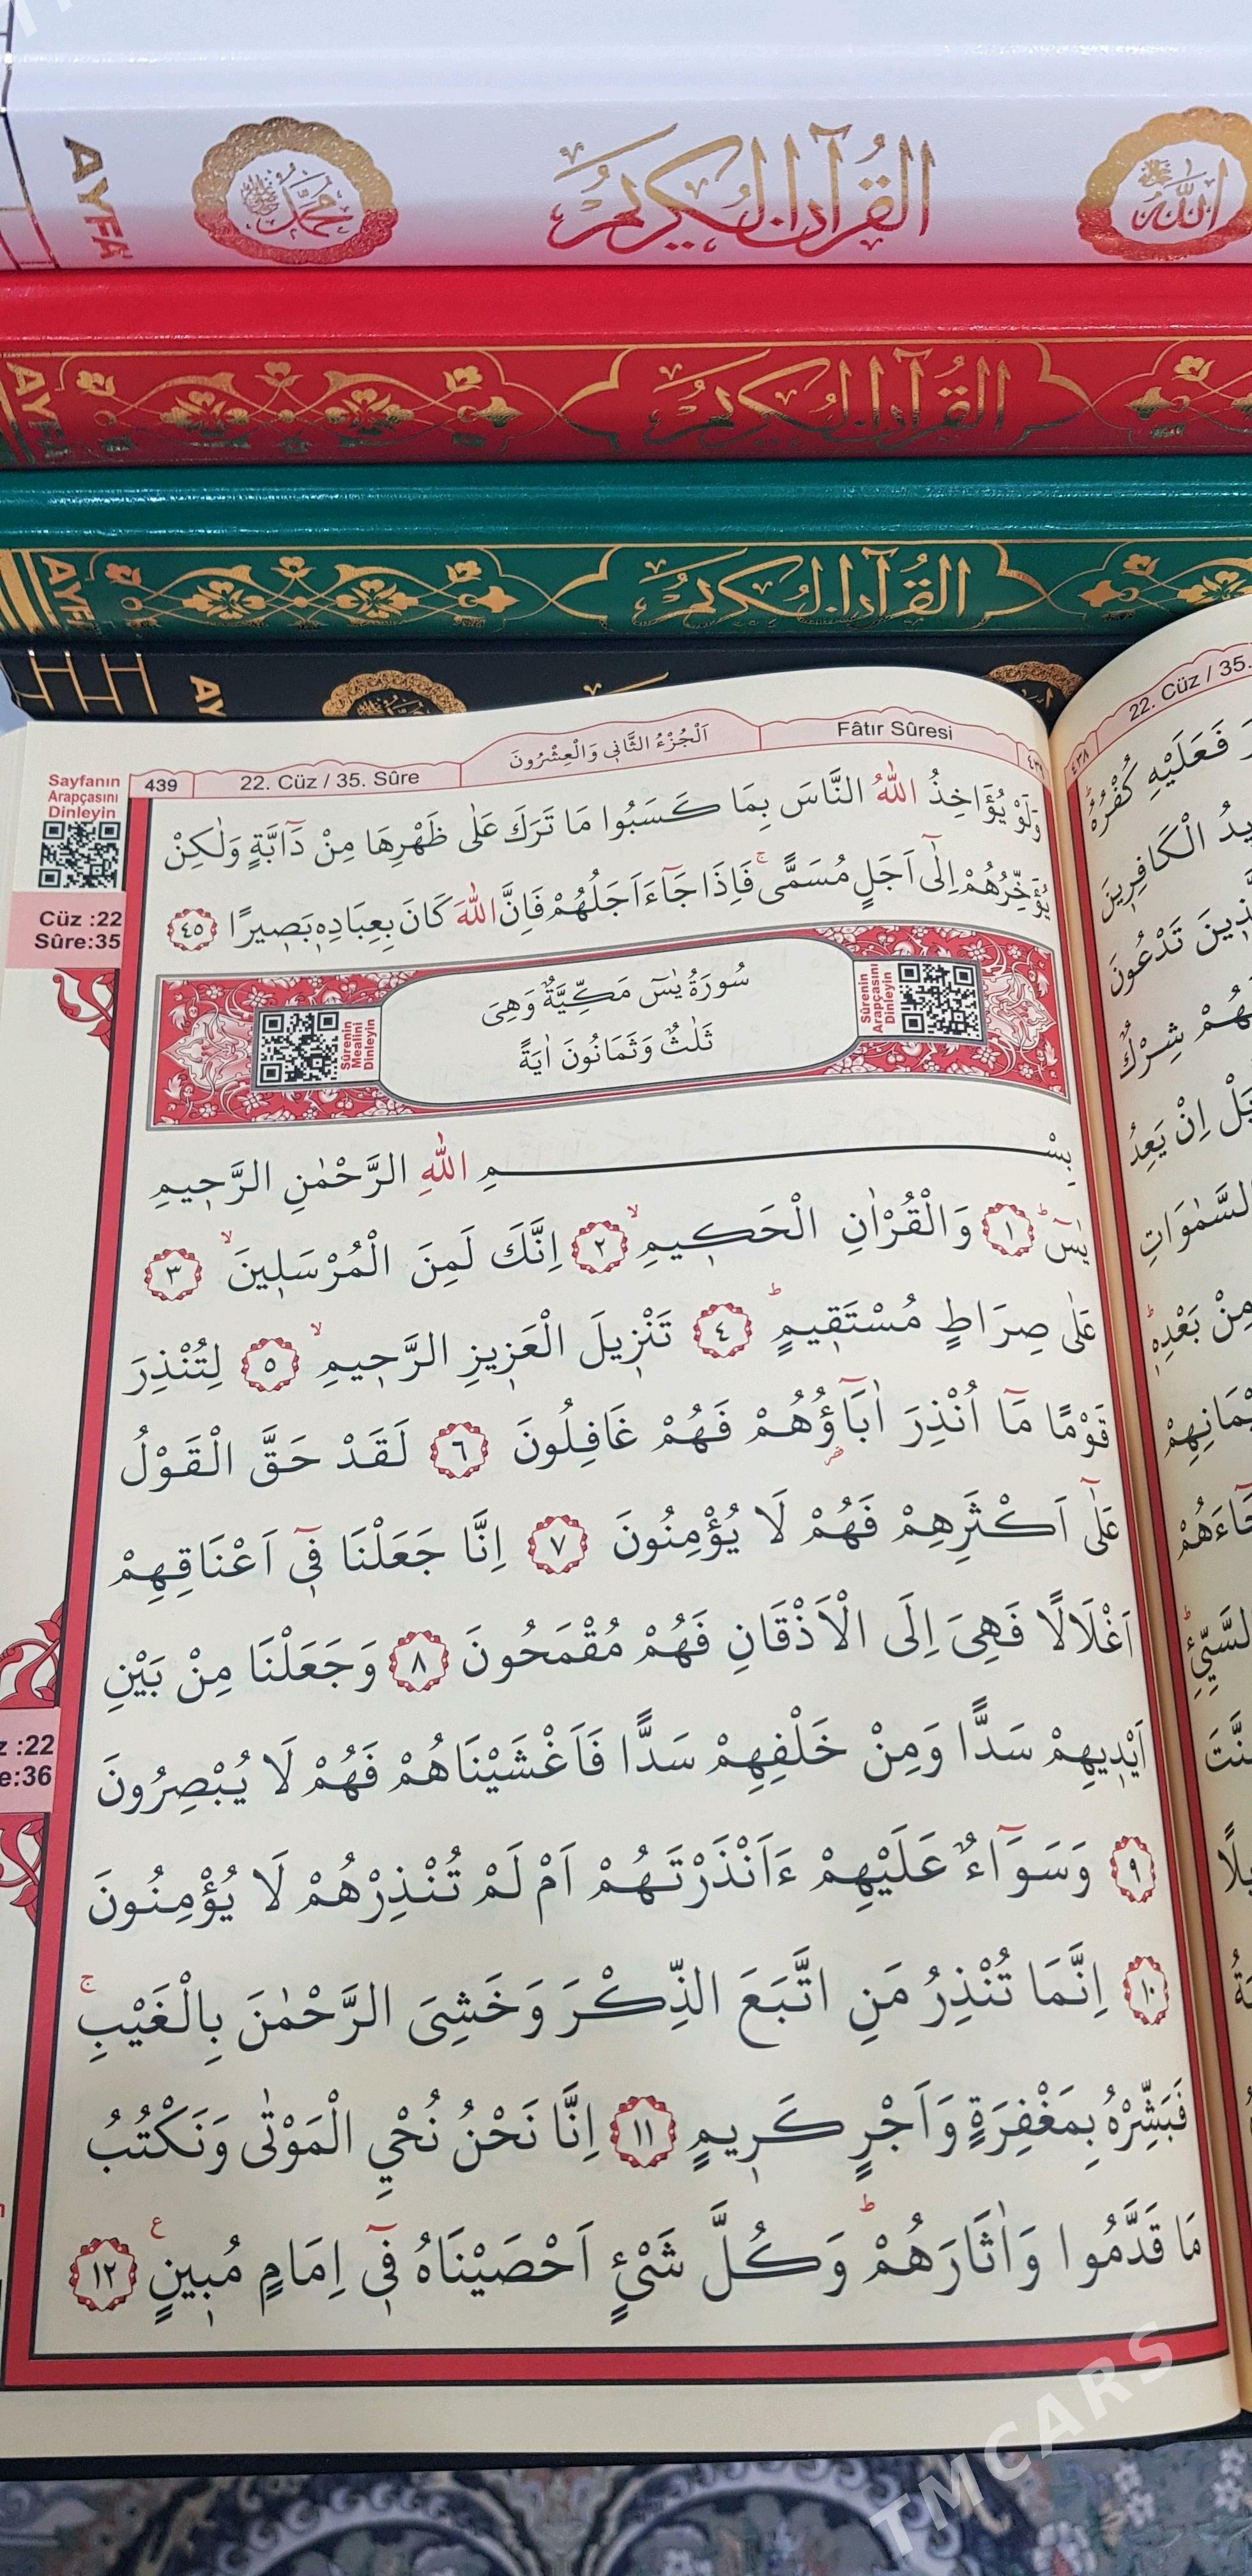 AYFA
محمد
القرآن الكريم
الله
AYFA
القرآن الكريم
AYFA
القرآن الكريم
AY
439
22. Cüz / 35. Sûre
اَلْجُزْءُ الثَّانِي وَالْعِشْرُونَ
Fâtır Sûresi
٤٣٩
Sayfanın
Arapçasını
Dinleyin
Cüz :22
Sûre:35
وَلَوْ يُؤَاخِذُ اللّٰهُ النَّاسَ بِمَا كَسَبُوا مَا تَرَكَ عَلٰى ظَهْرِهَا مِنْ دَٓابَّةٍ وَلٰكِنْ
يُؤَخِّرُهُمْ اِلٰٓى اَجَلٍ مُسَمًّىۚ فَاِذَا جَٓاءَ اَجَلُهُمْ فَاِنَّ اللّٰهَ كَانَ بِعِبَادِهٖ بَصٖيرًا ٤٥
Sûrenin
Arapçasını
Dinleyin
سُورَةُ يٰسٓ مَكِّيَّةٌ وَهِيَ
ثَلٰثٌ وَثَمَانُونَ اٰيَةً
Sûrenin
Mealini
Dinleyin
بِسْمِ اللّٰهِ الرَّحْمٰنِ الرَّحٖيمِ
يٰسٓۜ ١ وَالْقُرْاٰنِ الْحَكٖيمِۙ ٢ اِنَّكَ لَمِنَ الْمُرْسَلٖينَۙ ٣
عَلٰى صِرَاطٍ مُسْتَقٖيمٍۜ ٤ تَنْزٖيلَ الْعَزٖيزِ الرَّحٖيمِۙ ٥ لِتُنْذِرَ
قَوْمًا مَٓا اُنْذِرَ اٰبَٓاؤُ۬هُمْ فَهُمْ غَافِلُونَ ٦ لَقَدْ حَقَّ الْقَوْلُ
عَلٰٓى اَكْثَرِهِمْ فَهُمْ لَا يُؤْمِنُونَ ٧ اِنَّا جَعَلْنَا فٖٓي اَعْنَاقِهِمْ
اَغْلَالًا فَهِيَ اِلَى الْاَذْقَانِ فَهُمْ مُقْمَحُونَ ٨ وَجَعَلْنَا مِنْ بَيْنِ
اَيْدٖيهِمْ سَدًّا وَمِنْ خَلْفِهِمْ سَدًّا فَاَغْشَيْنَاهُمْ فَهُمْ لَا يُبْصِرُونَ
٩ وَسَوَٓاءٌ عَلَيْهِمْ ءَاَنْذَرْتَهُمْ اَمْ لَمْ تُنْذِرْهُمْ لَا يُؤْمِنُونَ
١٠ اِنَّمَا تُنْذِرُ مَنِ اتَّبَعَ الذِّكْرَ وَخَشِيَ الرَّحْمٰنَ بِالْغَيْبِۚ
فَبَشِّرْهُ بِمَغْفِرَةٍ وَاَجْرٍ كَرٖيمٍ ١١ اِنَّا نَحْنُ نُحْيِ الْمَوْتٰى وَنَكْتُبُ
مَا قَدَّمُوا وَاٰثَارَهُمْۜ وَكُلَّ شَيْءٍ اَحْصَيْنَاهُ فٖٓي اِمَامٍ مُبٖينٍ ع ١٢
:22
:36
٤٣٨
22. Cüz / 35.
فَعَلَيْهِ كُفْرُهُۜ
الْكَافِرٖينَ
تَدْعُونَ
شِرْكٌ
بَلْ اِنْ يَعِدُ
السَّمٰوَاتِ
مِنْ بَعْدِهٖۜ
TMCARS